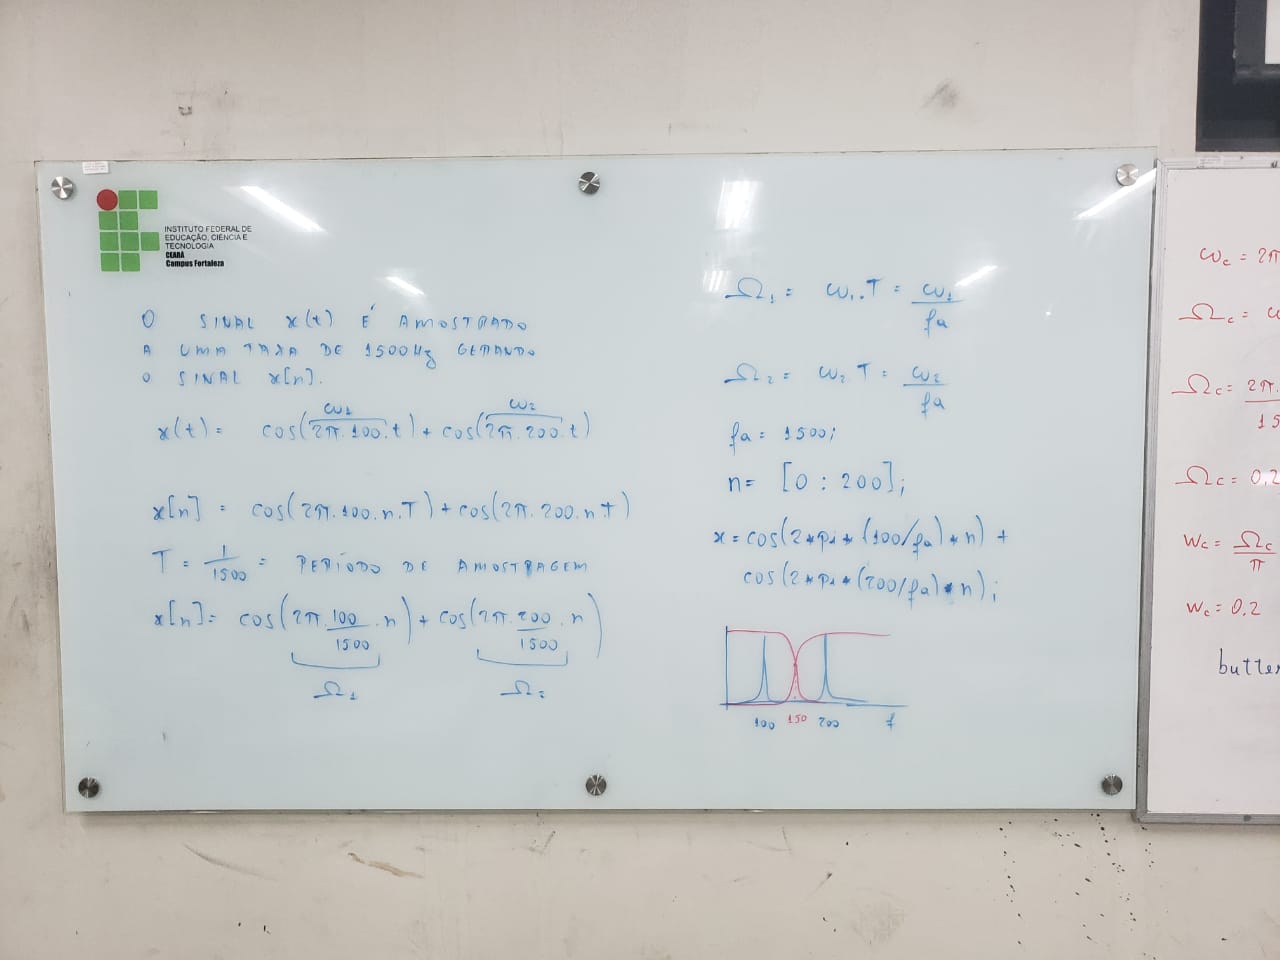 INSTITUTO FEDERAL DE
EDUCAÇÃO, CIÊNCIA E
TECNOLOGIA
CEARÁ
Campus Fortaleza
O SINAL x(t) É AMOSTRADO
A UMA TAXA DE 1500Hz GERANDO
O SINAL x[n].
ω1 ω2
x(t) = cos(2π.100.t) + cos(2π.200.t)
x[n] = cos(2π.100.n.T) + cos(2π.200.n.T)
T = 1/1500 = PERÍODO DE AMOSTRAGEM
x[n] = cos(2π.100/1500.n) + cos(2π.200/1500.n)
Ω1 Ω2
Ω1 = ω1.T = ω1/fa
Ω2 = ω2 T = ω2/fa
fa = 1500;
n = [0 : 200];
x = cos(2*pi*(100/fa)*n) +
cos(2*pi*(200/fa)*n);
100 150 200 f
ωc = 2π
Ωc =
Ωc = 2π.
15
Ωc = 0,2
Wc = Ωc/π
Wc = 0.2
butter